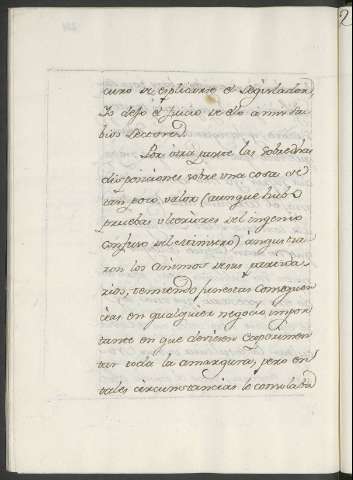 curo se esplicarse el Legislador,
Yo dejo el juicio de ello a mis sa-
bios Lectores.
Por otra parte las sobredhas
disposiciones sobre una cosa de
tan poco valor (aunque hubo
pruebas ulteriores del ingenio
confuso del estrangero) angustia-
ron los animos de sus partida-
rios, temiendo funestas consequen
cias en qualquier negocio impor-
tante en que deviesen esperimen-
tar toda la amargura; pero en
tales circunstancias los consolaba
2